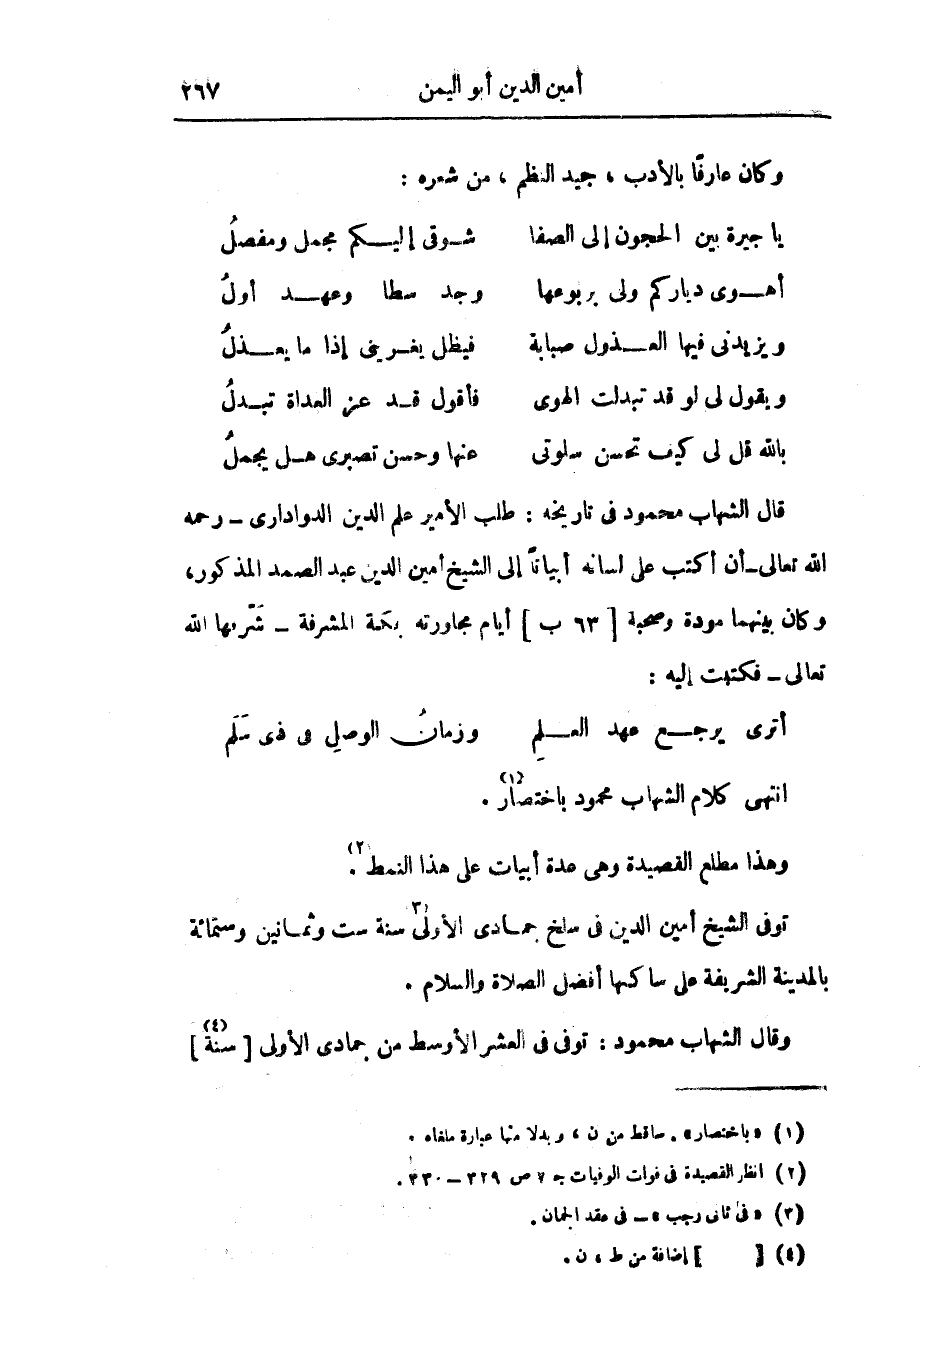 أمين الدين أبو اليمن ٢٦٧
وكان عارفًا بالأدب ، جيد النظم ، من شعره :
يا جيرة بين الحجون إلى الصفا شـوقى إليـكم مجمل ومفصلُ
أهـوى دياركم ولى بربوعها وجد سطا وعهـد أولُ
ويزيدنى فيها العـذول صبابة فيظل يغـرينى إذا ما يعـذلُ
ويقول لى لو قد تبدلت الهوى فأقول قـد عز العداة تبـدلُ
بالله قل لى كيف تحسن سلوتى عنها وحسن تصبرى هـل يجملُ
قال الشهاب محمود فى تاريخه : طلب الأمير علم الدين الدوادارى ـ رحمه
الله تعالى ـ أن أكتب على لسانه أبياتاً إلى الشيخ أمين الدين عبد الصمد المذكور،
وكان بينهما مودة وصحبة [ ٦٣ ب ] أيام مجاورته بمكة المشرفة ـ شَرّفها الله
تعالى ـ فكتبت إليه :
أترى يرجـع عهد العـلمِ وزمانُ الوصلِ فى ذى سَلَم
انتهى كلام الشهاب محمود باختصار(١) .
وهذا مطلع القصيدة وهى عدة أبيات على هذا النمط(٢) .
توفى الشيخ أمين الدين فى سلخ جمـادى الأولى(٣) سنة ست وثمـانين وستمائة
بالمدينة الشريفة على ساكنها أفضل الصلاة والسلام .
وقال الشهاب محمود : توفى فى العشر الأوسط من جمادى الأولى [ سنة(٤) ]
(١) «باختصار» . ساقط من ن ، وبدلا منها عبارة ملغاه .
(٢) انظر القصيدة فى فوات الوفيات جـ ٧ ص ٣٢٩ ـ ٣٣٠ .
(٣) «فى ثانى رجب» ـ فى عقد الجمان .
(٤) [ ] إضافة من ط ، ن .